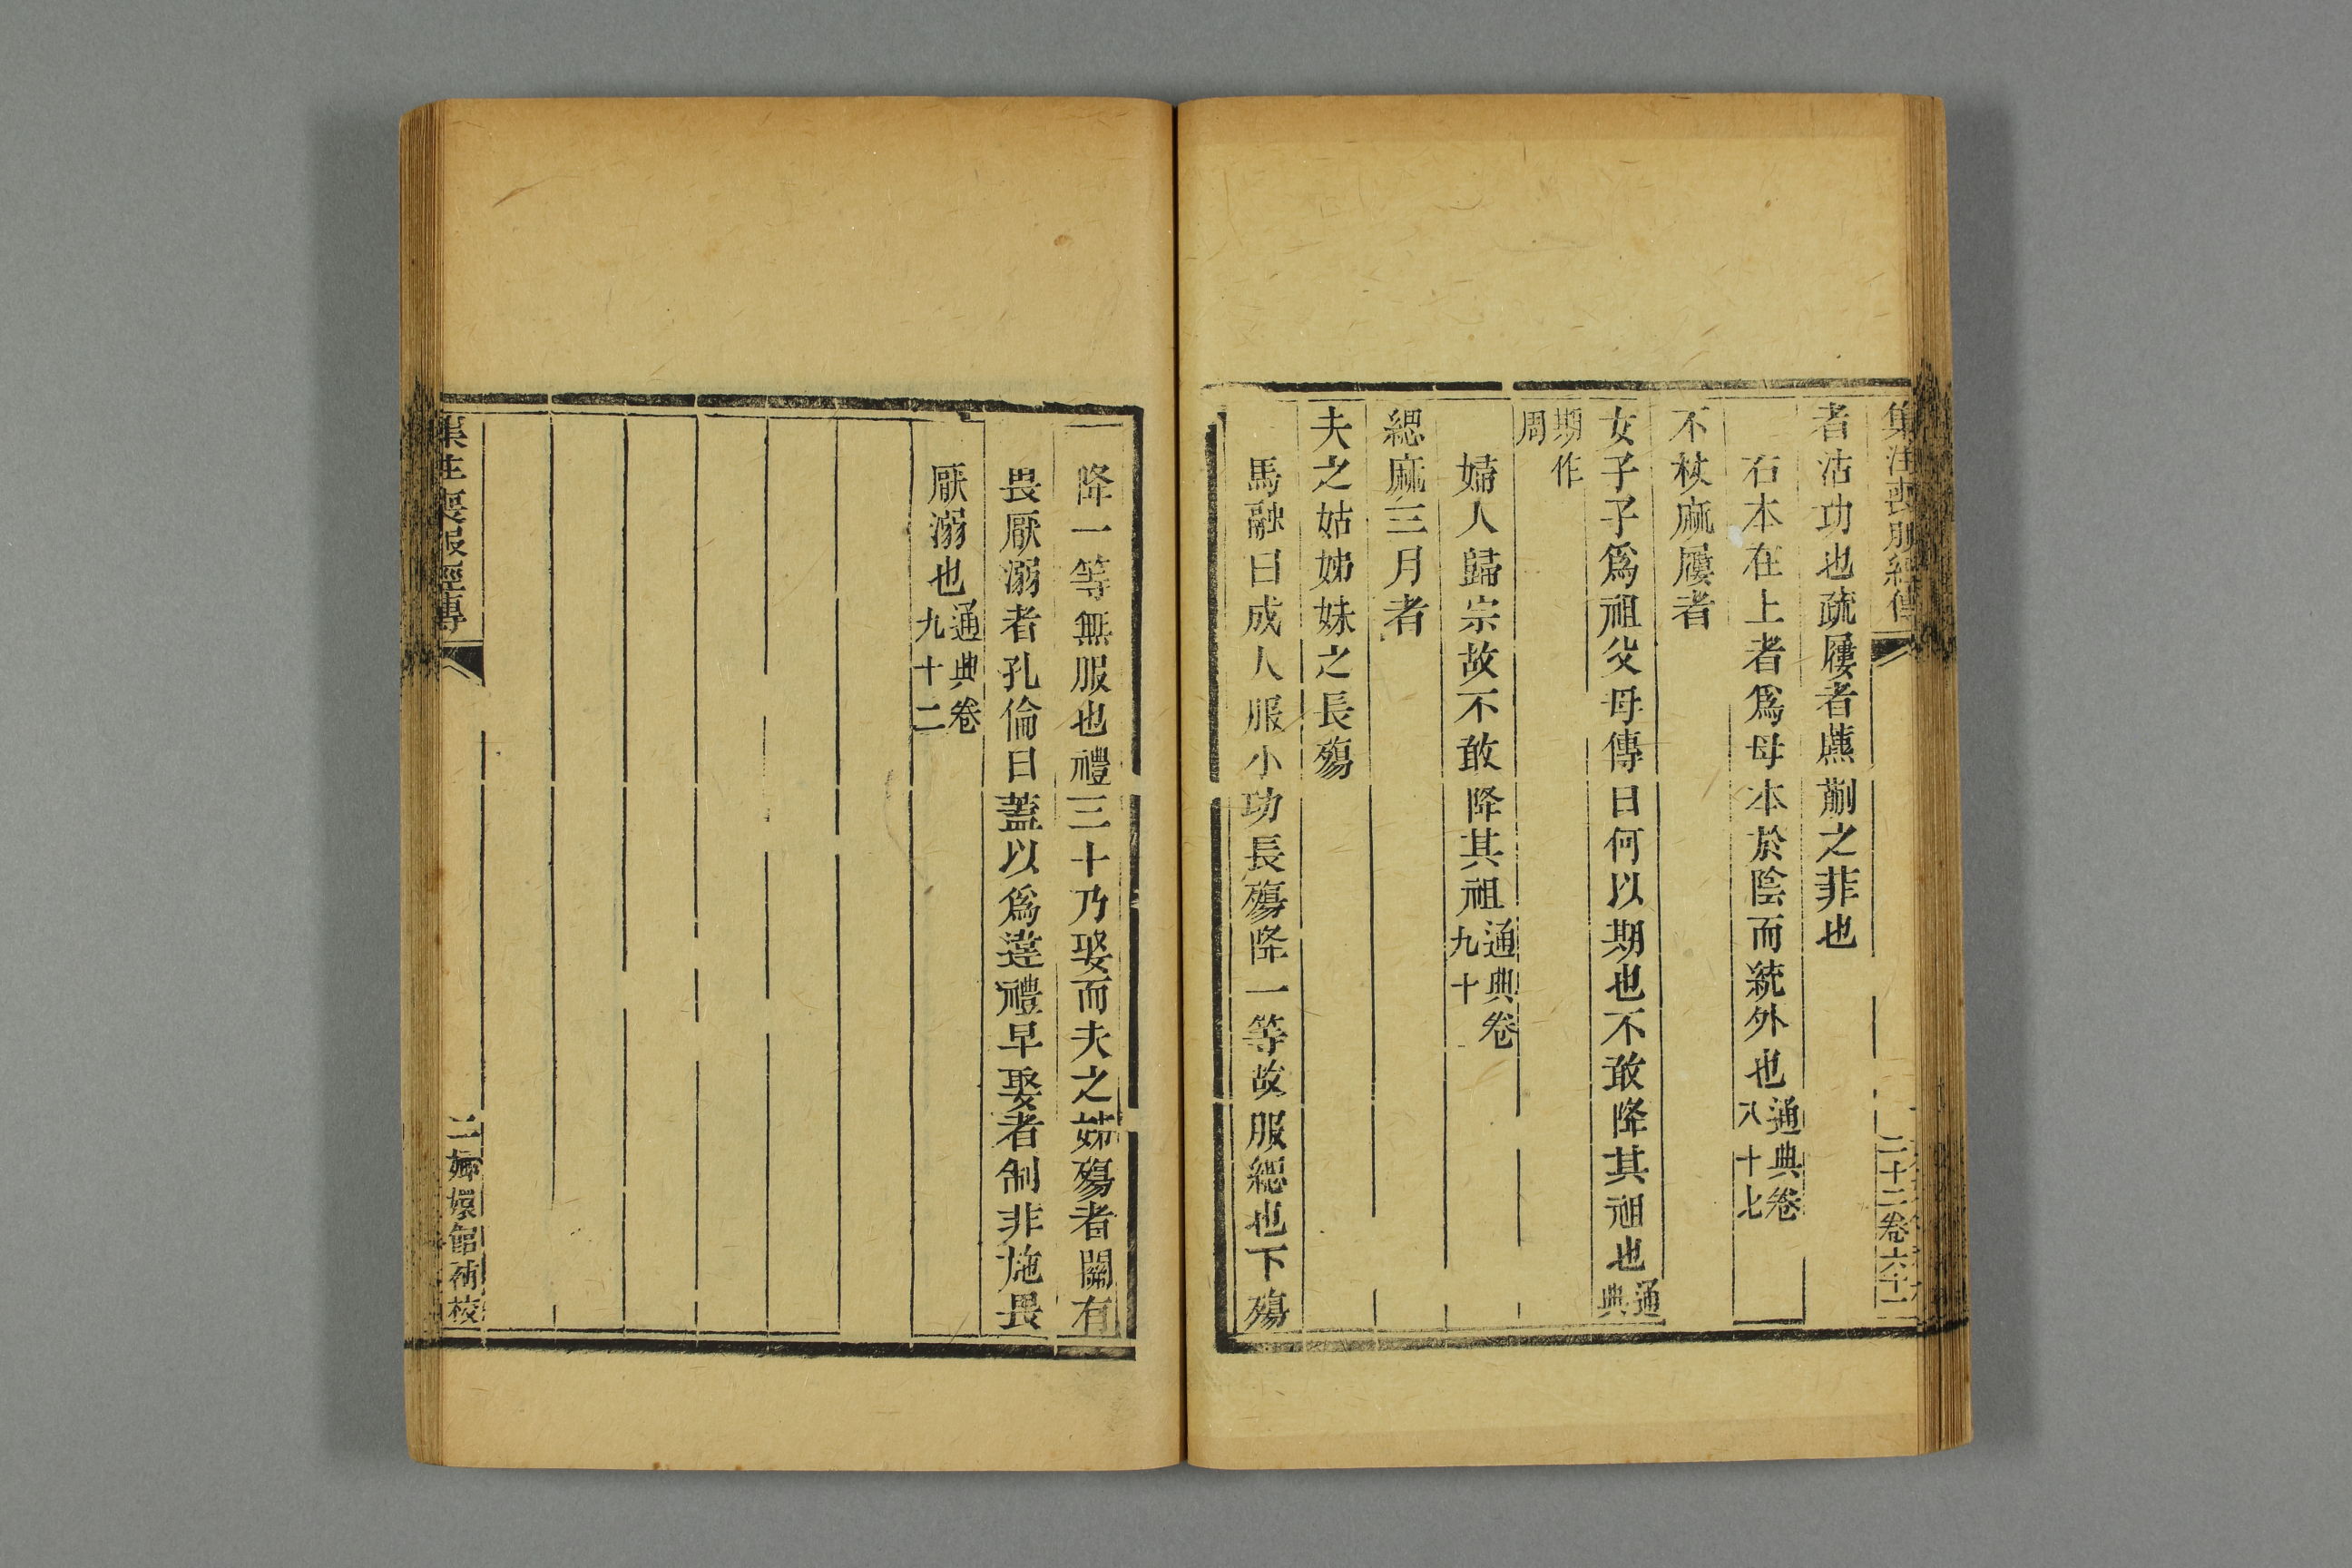 集注喪服經傳
二十二卷六十二
者沽功也疏屨者藨蒯之菲也
右本在上者爲母本於陰而統外也通典卷八十七
不杖麻屨者
女子子爲祖父母傳曰何以期也不敢降其祖也通典
期作周
婦人歸宗故不敢降其祖通典卷九十
緦麻三月者
夫之姑姊妹之長殤
馬融曰成人服小功長殤降一等故服緦也下殤
降一等無服也禮三十乃娶而夫之姊殤者關有
畏厭溺者孔倫曰蓋以爲違禮早娶者制非施畏
厭溺也通典卷九十二
集注喪服經傳
二嫏嬛館補校